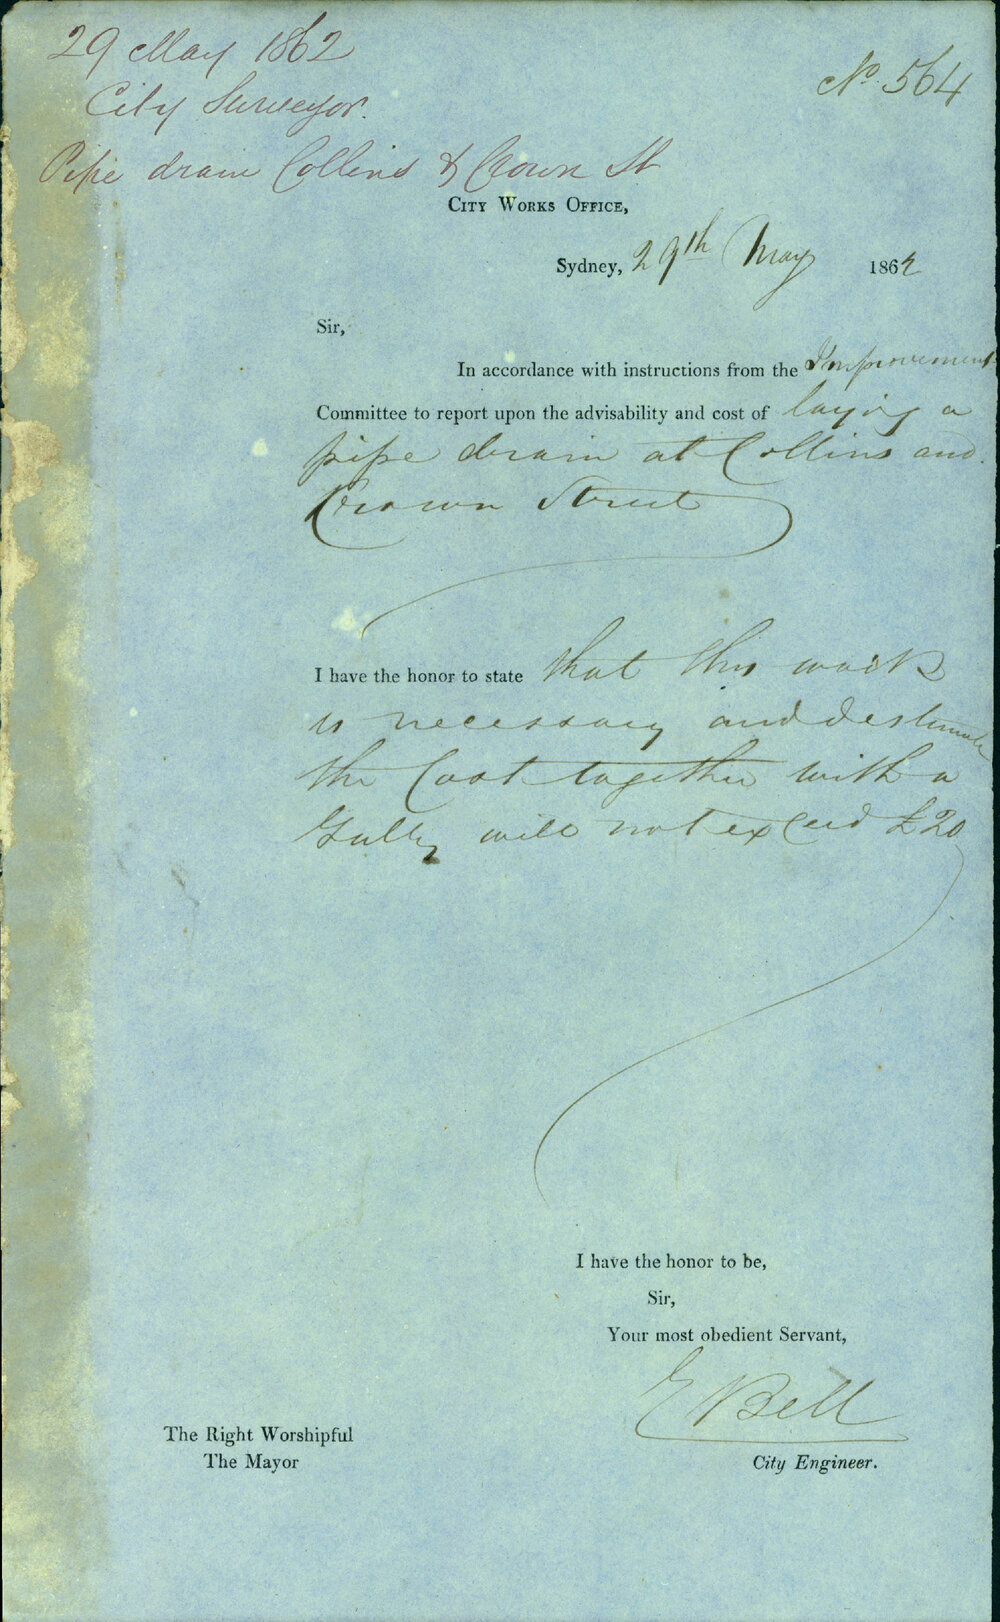 29 May 1862
No. 564
City Surveyor.
Pipe drain Collins & Crown St
City Works Office,
Sydney, 29th May 1862
Sir,
In accordance with instructions from the Improvement
Committee to report upon the advisability and cost of laying a
pipe drain at Collins and
Crown Street
I have the honor to state that this work
is necessary and estimate
the Cost together with a
Gully will not exceed £20
I have the honor to be,
Sir,
Your most obedient Servant,
E Bell
City Engineer.
The Right Worshipful
The Mayor